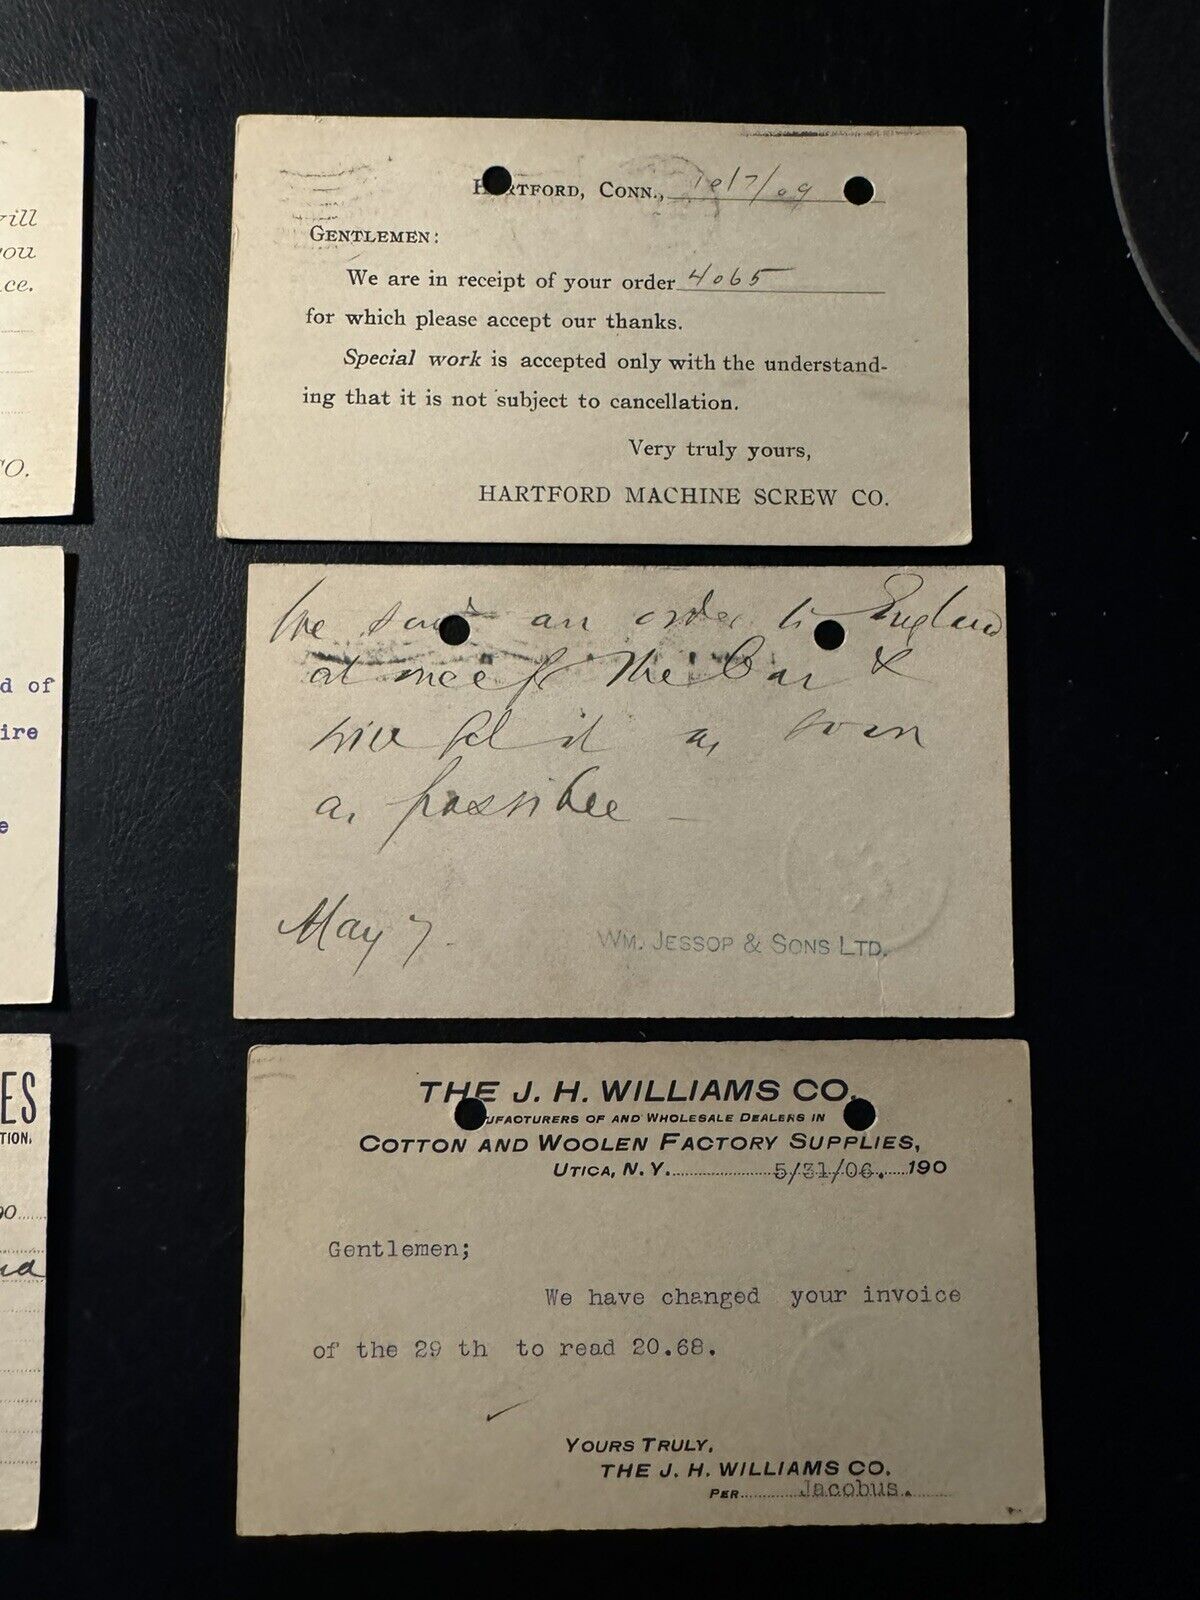 will
you
ce.
CO.
d of
ire
e
ES
TION,
90
HARTFORD, CONN., 10/7/09
GENTLEMEN:
We are in receipt of your order 4065
for which please accept our thanks.
Special work is accepted only with the understand-
ing that it is not subject to cancellation.
Very truly yours,
HARTFORD MACHINE SCREW CO.
We send an order to England
at once for the bar &
will fill it as soon
as possible —
May 7.
WM. JESSOP & SONS LTD.
THE J. H. WILLIAMS CO.
UFACTURERS OF AND WHOLESALE DEALERS IN
COTTON AND WOOLEN FACTORY SUPPLIES,
UTICA, N. Y. 5/31/06. 190
Gentlemen;
We have changed your invoice
of the 29 th to read 20.68.
YOURS TRULY,
THE J. H. WILLIAMS CO.
PER Jacobus.